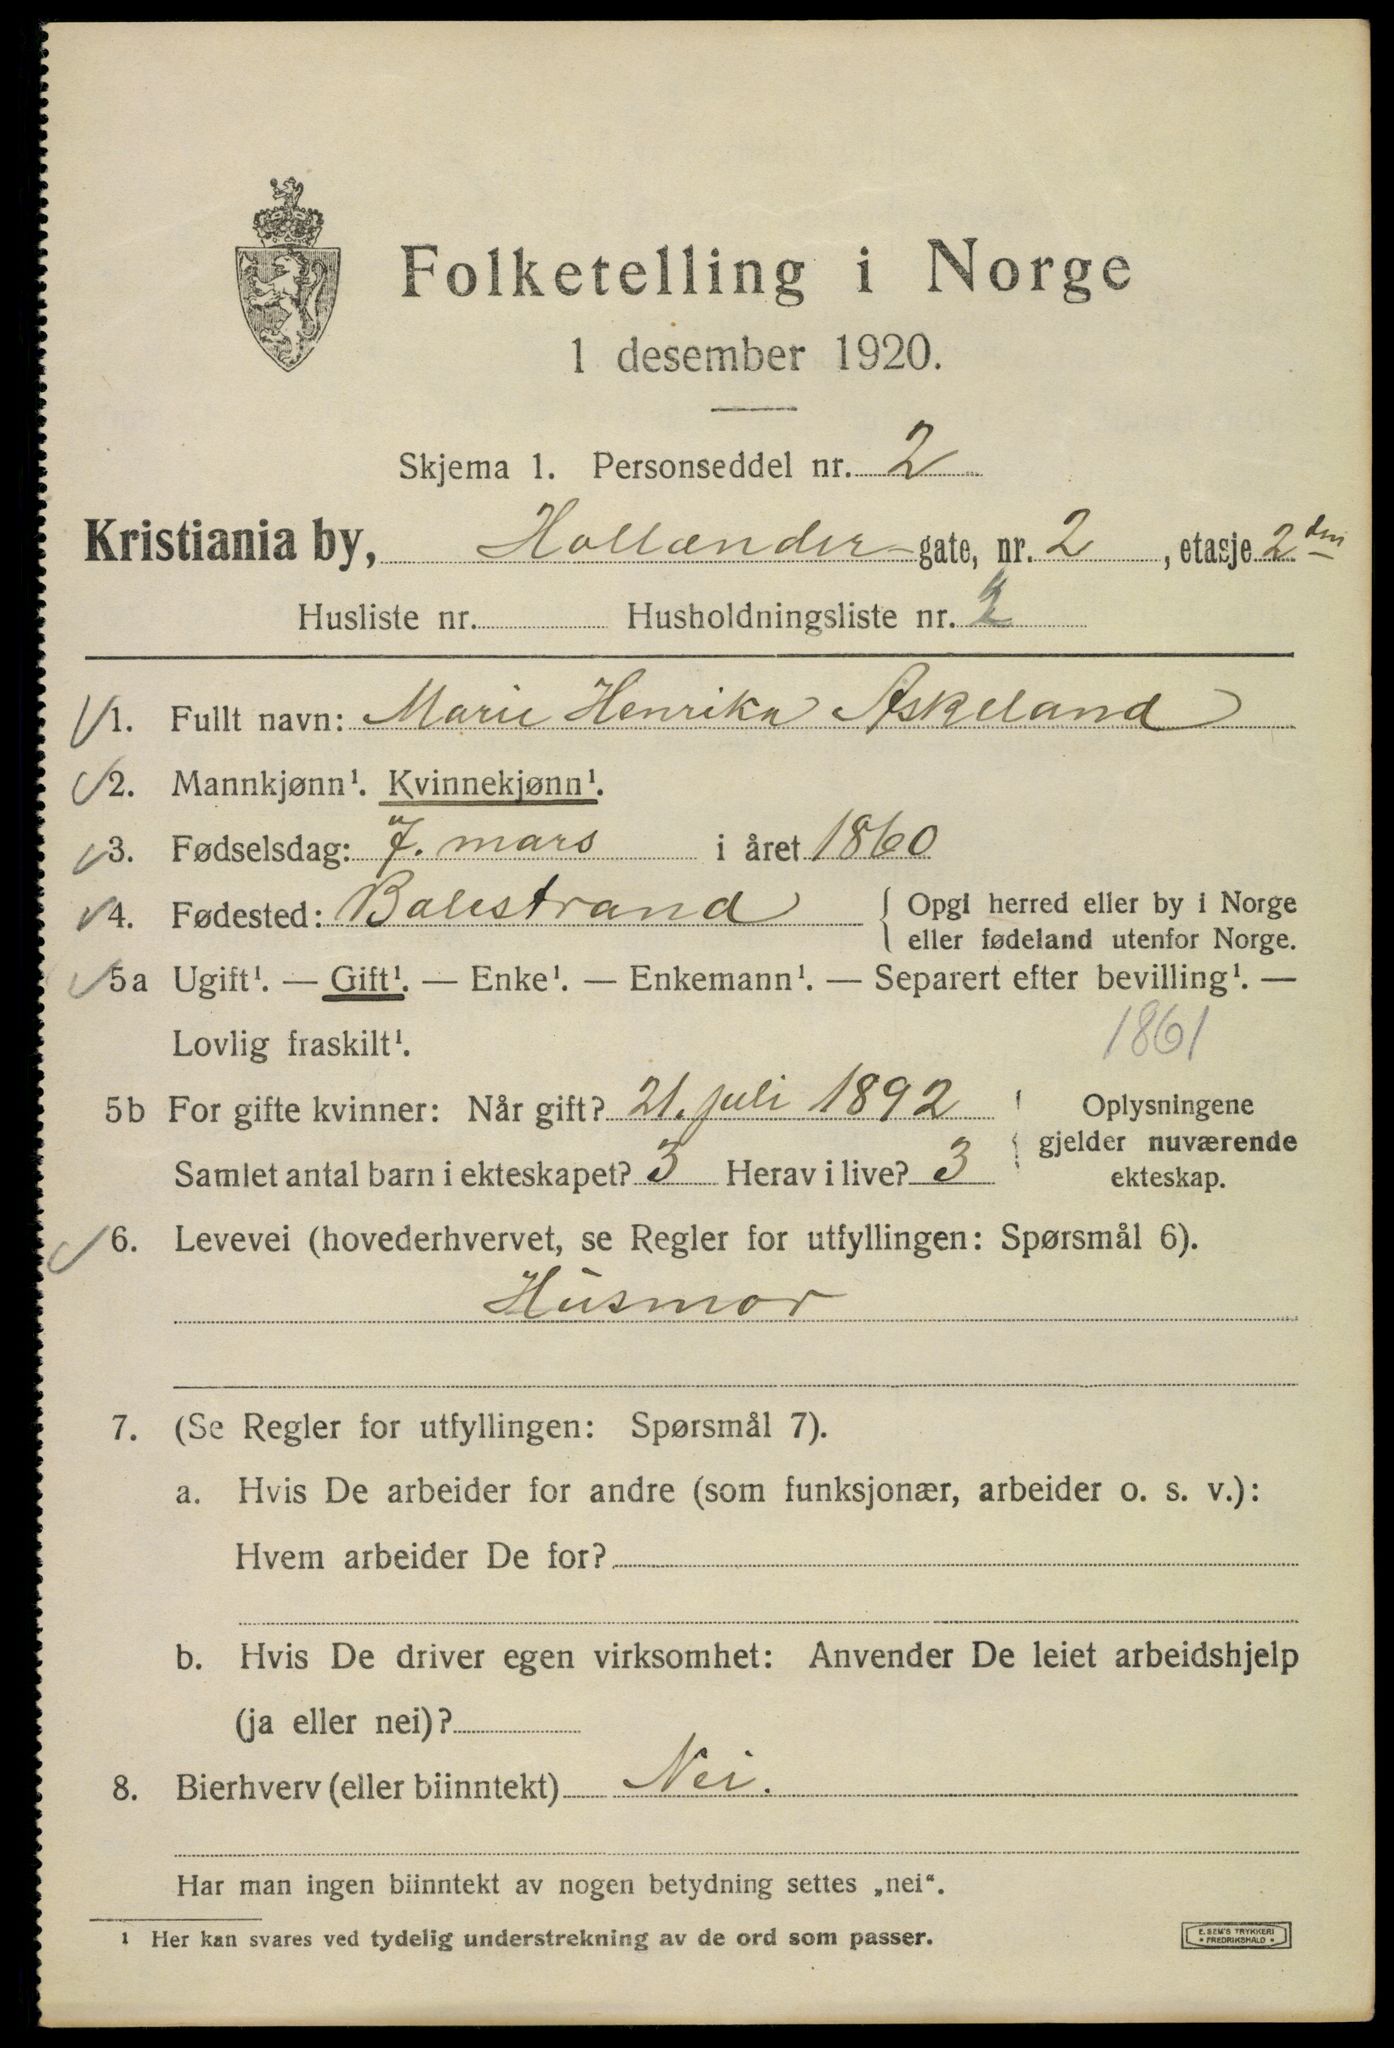 Folketelling i Norge
1 desember 1920.
Skjema 1. Personseddel nr. 2
Kristiania by, Hollænder-gate, nr. 2, etasje 2den
Husliste nr. Husholdningsliste nr. 2
1. Fullt navn: Marie Henrika Askeland
2. Mannkjønn¹. Kvinnekjønn¹.
3. Fødselsdag: 7. mars i året 1860
4. Fødested: Balestrand { Opgi herred eller by i Norge
eller fødeland utenfor Norge.
5a Ugift¹. — Gift¹. — Enke¹. — Enkemann¹. — Separert efter bevilling¹. —
Lovlig fraskilt¹. 1861
5b For gifte kvinner: Når gift? 21. juli 1892 Oplysningene
gjelder nuværende
Samlet antal barn i ekteskapet? 3 Herav i live? 3 ekteskap.
6. Levevei (hovederhvervet, se Regler for utfyllingen: Spørsmål 6).
Husmor
7. (Se Regler for utfyllingen: Spørsmål 7).
a. Hvis De arbeider for andre (som funksjonær, arbeider o. s. v.):
Hvem arbeider De for?
b. Hvis De driver egen virksomhet: Anvender De leiet arbeidshjelp
(ja eller nei)?
8. Bierhverv (eller biinntekt) Nei.
Har man ingen biinntekt av nogen betydning settes „nei“.
¹ Her kan svares ved tydelig understrekning av de ord som passer.
E. SEM'S TRYKKERI
FREDRIKSHALD